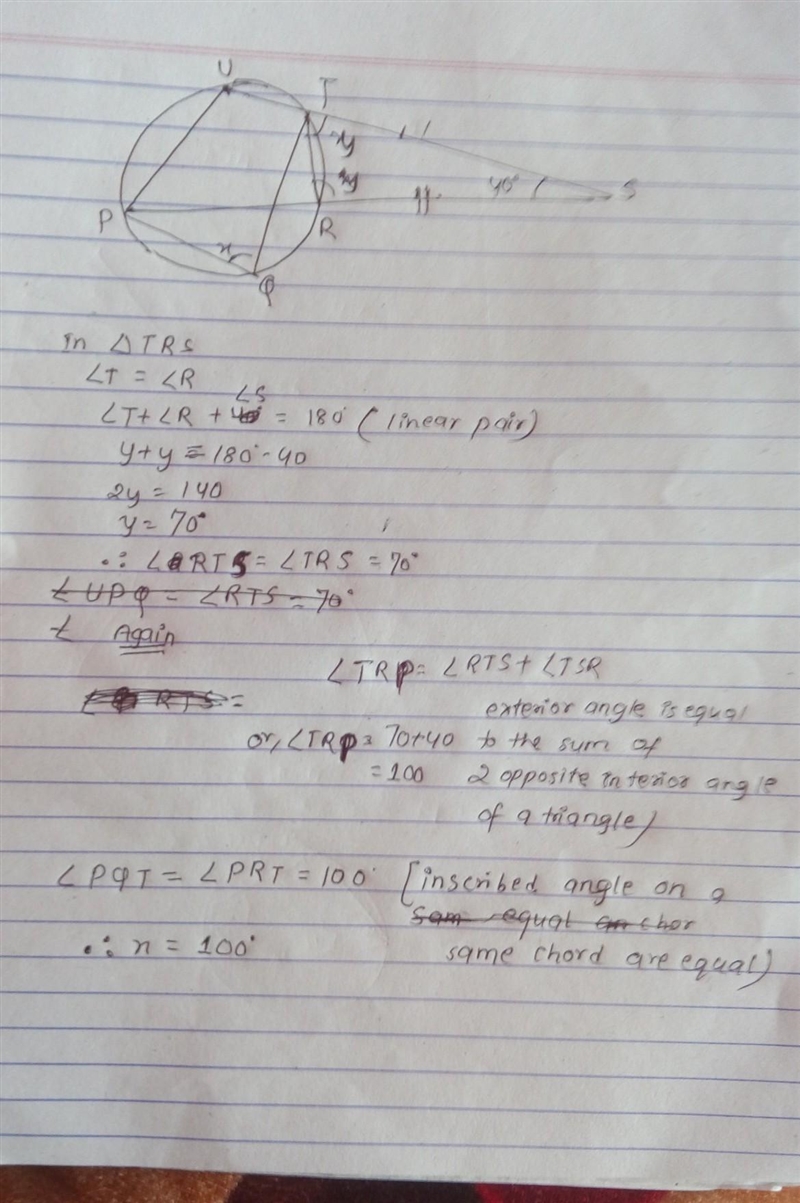 U
T
y
y
40°
S
P
R
x
Q
In △TRS
∠T = ∠R
∠S
∠T + ∠R + 40° = 180° (linear pair)
y + y = 180° - 40
2y = 140
y = 70°
∴ ∠RTS = ∠TRS = 70°
∠UPQ = ∠RTS = 70°
∠ Again
∠TRP = ∠RTS + ∠TSR
∠ RTS =
exterior angle is equal
or, ∠TRP = 70+40 to the sum of
= 100 2 opposite interior angle
of a triangle)
∠PQT = ∠PRT = 100° [inscribed angle on a
Sam equal an chor
∴ x = 100° same chord are equal)